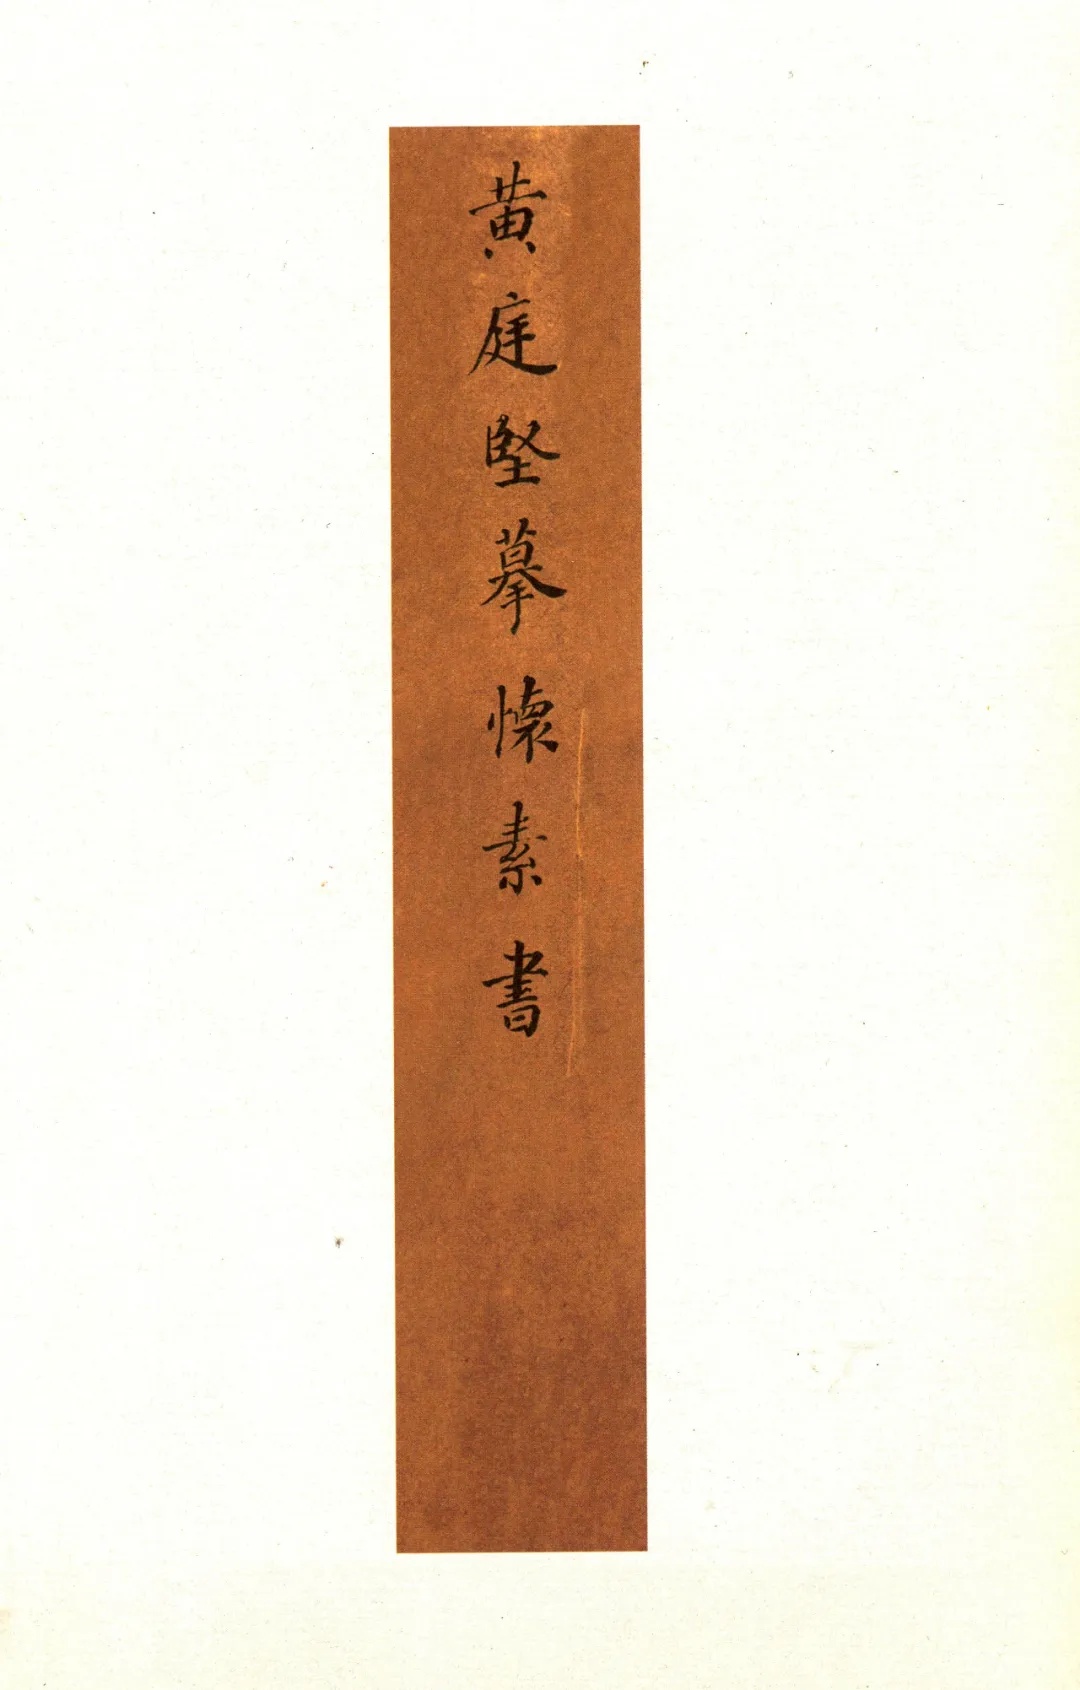 黄庭堅摹懷素書